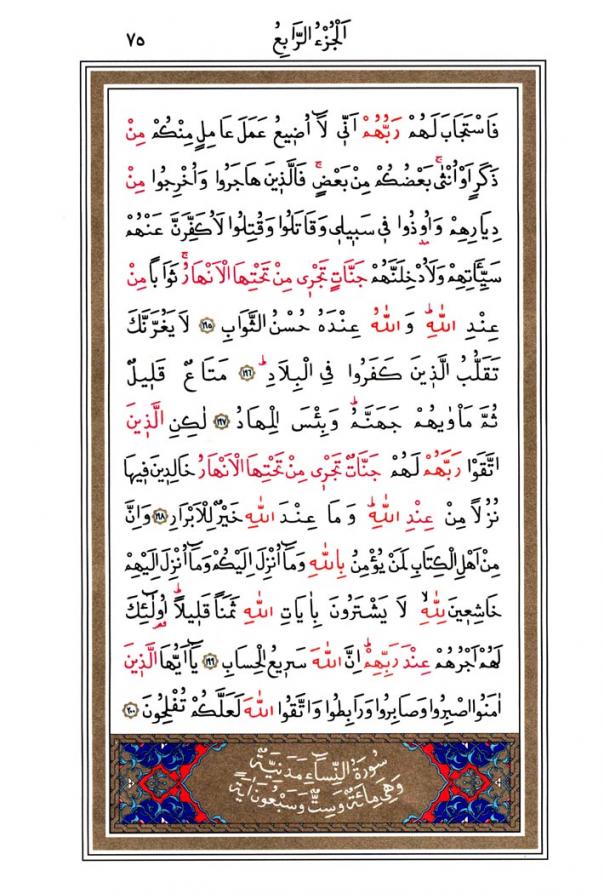 اَلْجُزْءُ الرَّابِعُ
٧٥
فَاسْتَجَابَ لَهُمْ رَبُّهُمْ اَنّ۪ي لَٓا اُض۪يعُ عَمَلَ عَامِلٍ مِنْكُمْ مِنْ
ذَكَرٍ اَوْ اُنْثٰىۚ بَعْضُكُمْ مِنْ بَعْضٍۚ فَالَّذ۪ينَ هَاجَرُوا وَاُخْرِجُوا مِنْ
دِيَارِهِمْ وَاُو۫ذُوا ف۪ي سَب۪يل۪ي وَقَاتَلُوا وَقُتِلُوا لَاُكَفِّرَنَّ عَنْهُمْ
سَيِّـَٔاتِهِمْ وَلَاُدْخِلَنَّهُمْ جَنَّاتٍ تَجْر۪ي مِنْ تَحْتِهَا الْاَنْهَارُۚ ثَوَابًا مِنْ
عِنْدِ اللّٰهِۜ وَاللّٰهُ عِنْدَهُ حُسْنُ الثَّوَابِ ﴿١٩٥﴾ لَا يَغُرَّنَّكَ
تَقَلُّبُ الَّذ۪ينَ كَفَرُوا فِي الْبِلَادِۜ ﴿١٩٦﴾ مَتَاعٌ قَل۪يلٌ
ثُمَّ مَاْوٰيهُمْ جَهَنَّمُۜ وَبِئْسَ الْمِهَادُ ﴿١٩٧﴾ لٰكِنِ الَّذ۪ينَ
اتَّقَوْا رَبَّهُمْ لَهُمْ جَنَّاتٌ تَجْر۪ي مِنْ تَحْتِهَا الْاَنْهَارُ خَالِد۪ينَ ف۪يهَا
نُزُلًا مِنْ عِنْدِ اللّٰهِۜ وَمَا عِنْدَ اللّٰهِ خَيْرٌ لِلْاَبْرَارِ ﴿١٩٨﴾ وَاِنَّ
مِنْ اَهْلِ الْكِتَابِ لَمَنْ يُؤْمِنُ بِاللّٰهِ وَمَٓا اُنْزِلَ اِلَيْكُمْ وَمَٓا اُنْزِلَ اِلَيْهِمْ
خَاشِع۪ينَ لِلّٰهِۙ لَا يَشْتَرُونَ بِاٰيَاتِ اللّٰهِ ثَمَنًا قَل۪يلًاۜ اُو۬لٰٓئِكَ
لَهُمْ اَجْرُهُمْ عِنْدَ رَبِّهِمْۜ اِنَّ اللّٰهَ سَر۪يعُ الْحِسَابِ ﴿١٩٩﴾ يَٓا اَيُّهَا الَّذ۪ينَ
اٰمَنُوا اصْبِرُوا وَصَابِرُوا وَرَابِطُوا وَاتَّقُوا اللّٰهَ لَعَلَّكُمْ تُفْلِحُونَ ﴿٢٠٠﴾
سُورَةُ النِّسَٓاءِ مَدَنِيَّةٌ
وَهِيَ مِائَةٌ وَسِتٌّ وَسَبْعُونَ اٰيَةً